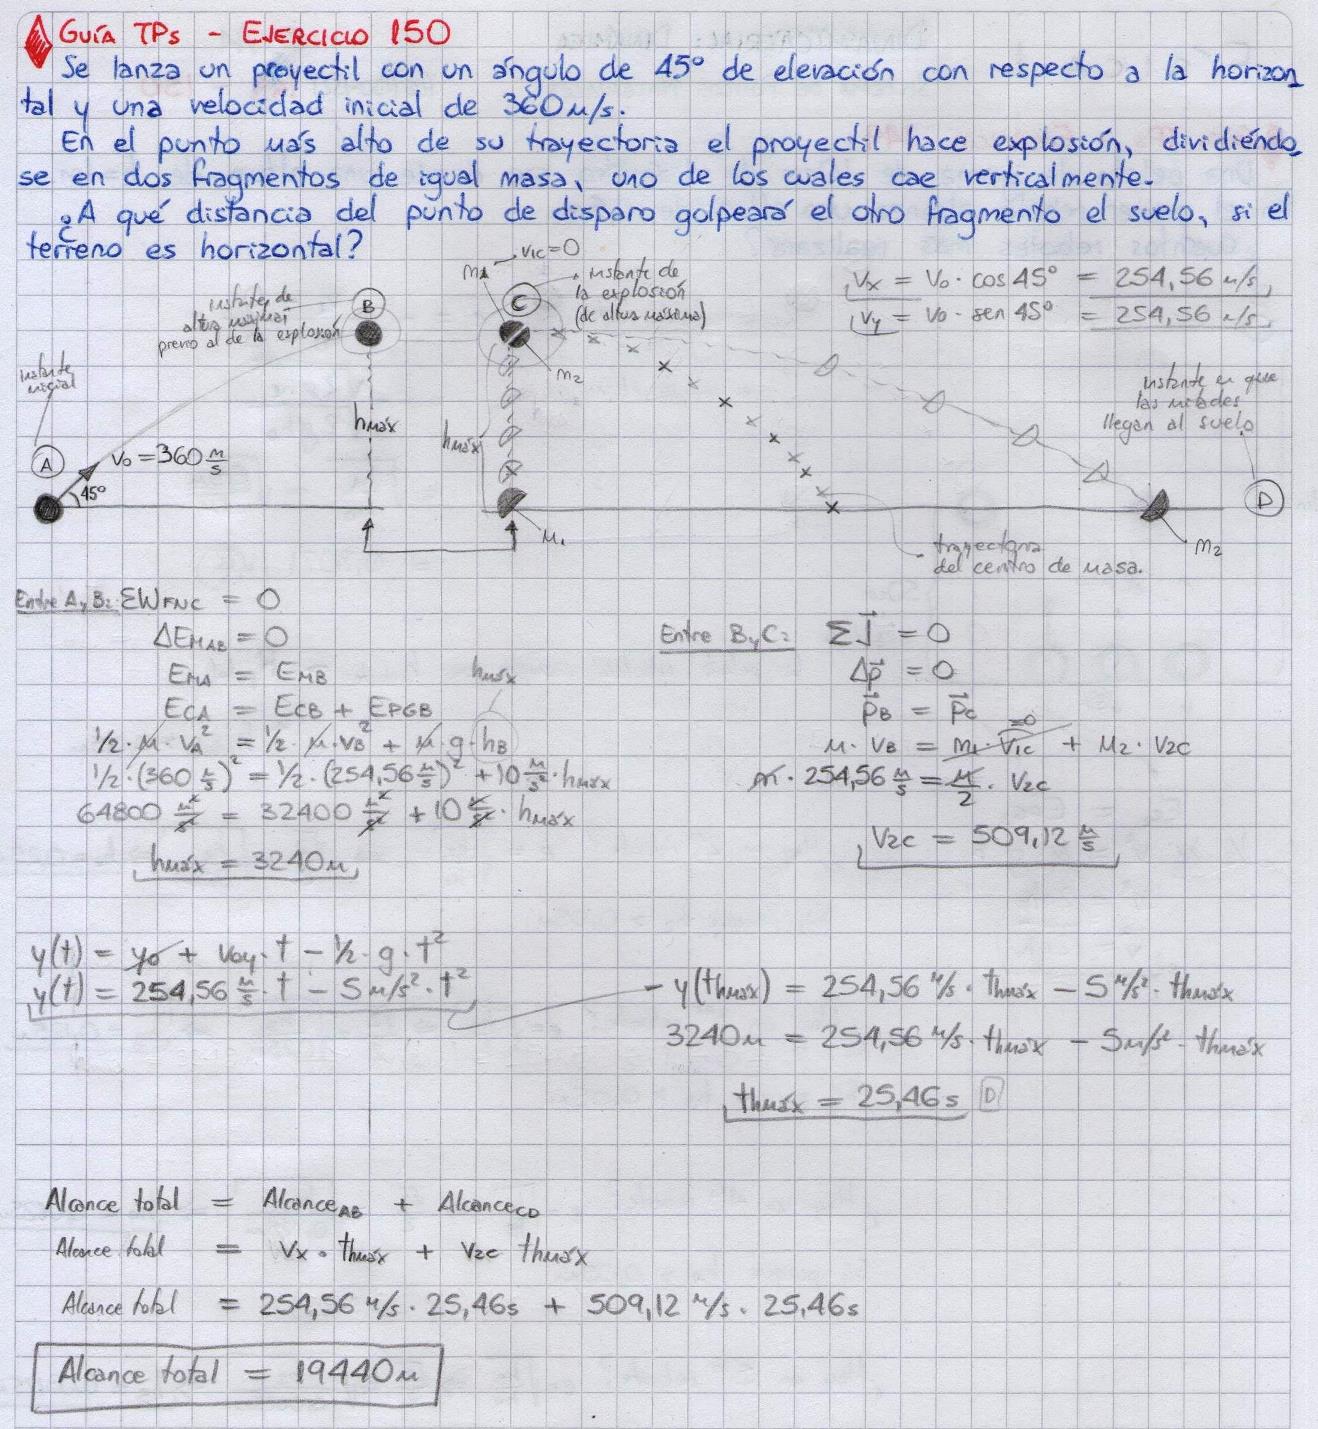 Guía TPs - Ejercicio 150
Se lanza un proyectil con un ángulo de 45° de elevación con respecto a la horizon
tal y una velocidad inicial de 360m/s.
En el punto más alto de su trayectoria el proyectil hace explosión, dividiéndo
se en dos fragmentos de igual masa, uno de los cuales cae verticalmente.
¿A qué distancia del punto de disparo golpeará el otro fragmento el suelo, si el
terreno es horizontal?
Vx = Vo · cos 45° = 254,56 m/s
Vy = Vo · sen 45° = 254,56 m/s
instante de
altura máxima
previo al de la explosión
B
m1
v1c=0
C
instante de
la explosión
(de altura máxima)
m2
instante
inicial
A
Vo = 360 m/s
45°
hmáx
hmáx
m1
instante en que
las mitades
llegan al suelo
D
m2
trayectoria
del centro de masa.
Entre A y B: ΣWFNC = 0
ΔEMAB = 0
EMA = EMB
hmáx
ECA = ECB + EPGB
1/2 · m · VA² = 1/2 · m · VB² + m · g · hB
1/2 · (360 m/s)² = 1/2 · (254,56 m/s)² + 10 m/s² · hmáx
64800 m²/s² = 32400 m²/s² + 10 m/s² · hmáx
hmáx = 3240m
Entre B y C: ΣJ⃗ = 0
Δp⃗ = 0
p⃗B = p⃗C
=0
m · VB = m1 · V1C + m2 · V2C
m · 254,56 m/s = m/2 · V2C
V2C = 509,12 m/s
y(t) = yo + Voy · t - 1/2 · g · t²
y(t) = 254,56 m/s · t - 5m/s² · t²
y(thmáx) = 254,56 m/s · thmáx - 5 m/s² · thmáx
3240m = 254,56 m/s · thmáx - 5m/s² · thmáx
thmáx = 25,46s D
Alcance total = AlcanceAB + AlcanceCD
Alcance total = Vx · thmáx + V2C thmáx
Alcance total = 254,56 m/s · 25,46s + 509,12 m/s · 25,46s
Alcance total = 19440m